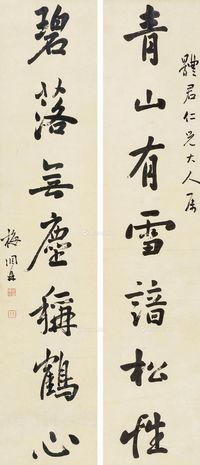 體君仁兄大人属
青山有雪諳松性
碧落無塵稱鶴心
梅調鼎